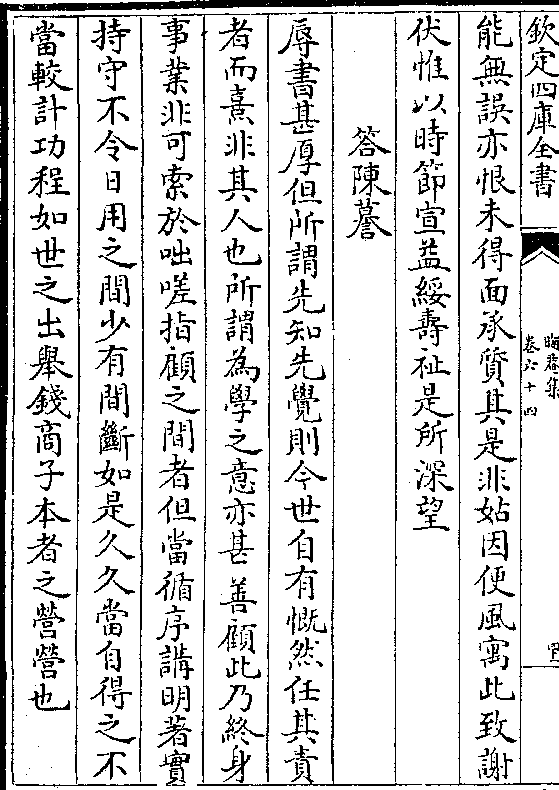 欽定四庫全書
晦菴集
卷六十四
能無誤亦恨未得面承質其是非姑因便風寓此致謝
伏惟以時節宣益綏壽祉是所深望
答陳䕫
辱書甚厚但所謂先知先覺則今世自有慨然任其責
者而熹非其人也所謂為學之意亦甚善顧此乃終身
事業非可索於咄嗟指顧之間者但當循序講明著實
持守不令日用之間少有間斷如是久久當自得之不
當較計功程如世之出舉錢商子本者之營營也